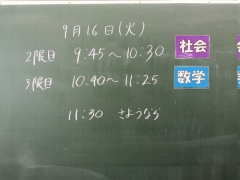 9月16日(火)
2限目 9:45〜10:30 社会
3限目 10:40〜11:25 数学
11:30 さようなら